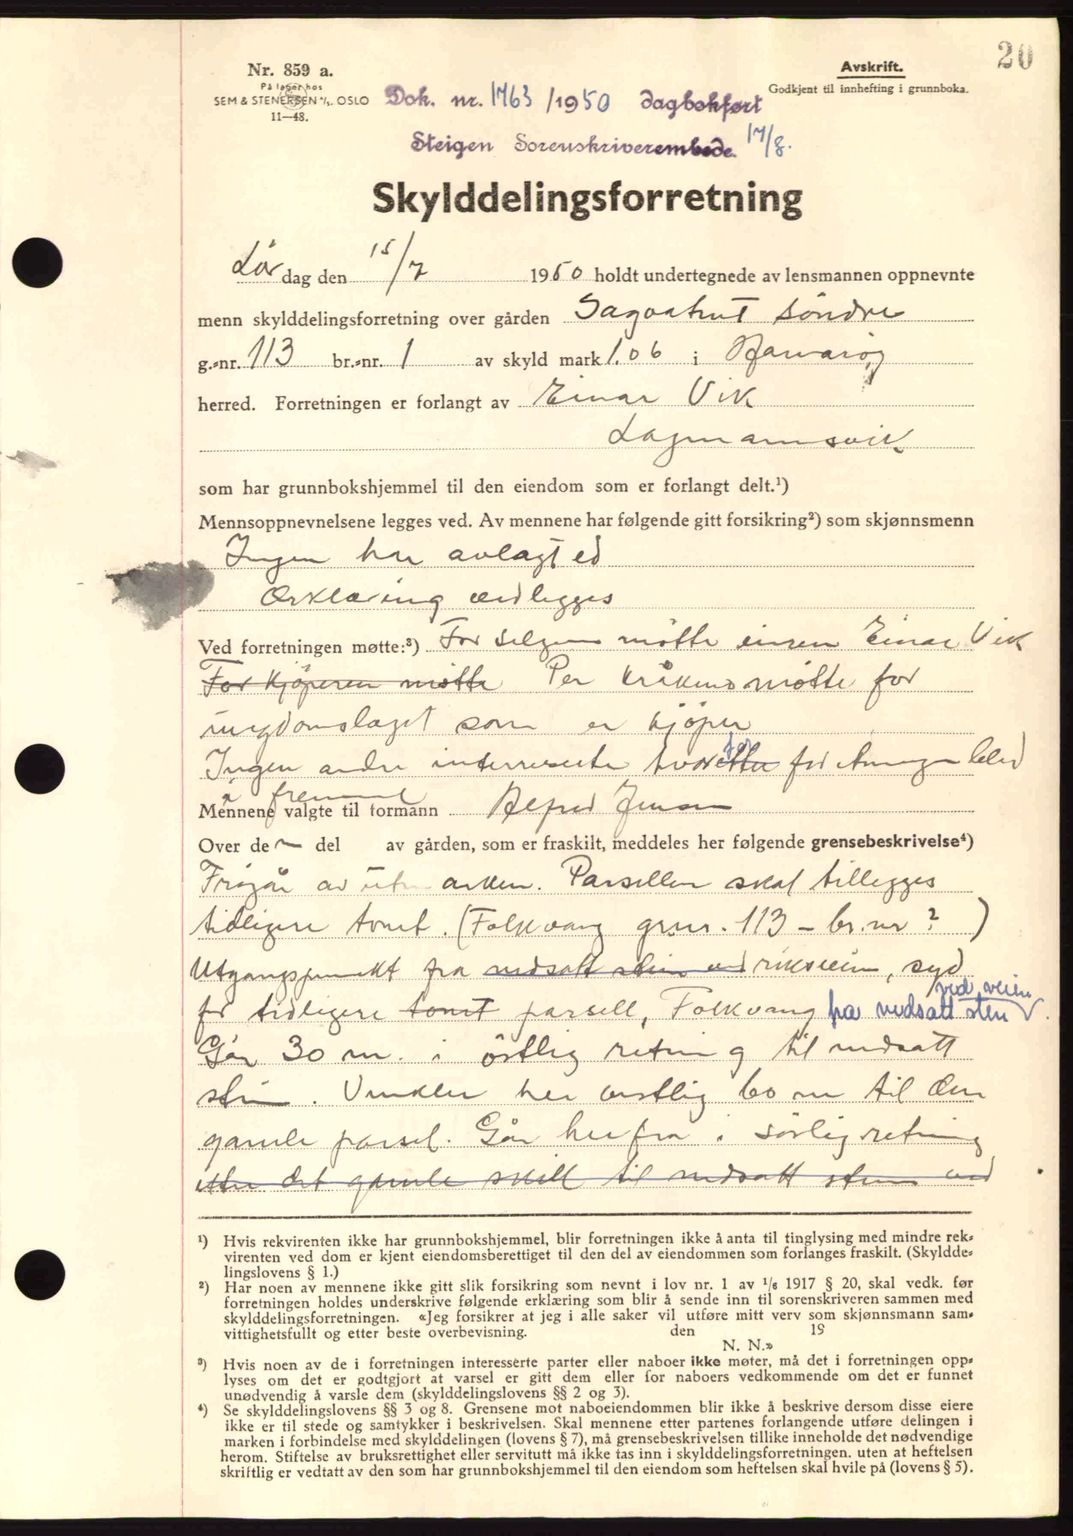 20
Nr. 859 a.
På lager hos
SEM & STENERSEN A/S. OSLO
11—48.
Avskrift.
Godkjent til innhefting i grunnboka.
Dok. nr. 1763/1950 dagbokført
Steigen Sorenskriverembede. 17/8.
Skylddelingsforretning
Lør dag den 15/7 1950 holdt undertegnede av lensmannen oppnevnte
menn skylddelingsforretning over gården Sagvatnet söndre
g.-nr. 113 br.-nr. 1 av skyld mark 1.06 i Hamaröy
herred. Forretningen er forlangt av Einar Vik
Lagmannsvik
som har grunnbokshjemmel til den eiendom som er forlangt delt.¹)
Mennsoppnevnelsene legges ved. Av mennene har følgende gitt forsikring²) som skjønnsmenn
Ingen har avlagt ed
Ærklæring vedlegges
Ved forretningen møtte:³) For selgeren mötte eieren Einar Vik
For kjöperen mötte Per Kråkmo mötte for
ungdomslaget som er kjöper
Ingen andre interreserte hvoretter for forretningen blev
Mennene valgte til formann Alfred Jensen
fremmet
Over de del av gården, som er fraskilt, meddeles her følgende grensebeskrivelse⁴)
Frågår av utmarken. Parsellen skal tillegges
tidligere tomt. (Folkvang grnr. 113 – br.nr ? )
Utgangspunkt fra nedsatt sten ved riksveien, syd
for tidligere tomt parsell, Folkvang fra nedsatt sten ved veien.
Går 30 m. i östlig retning til nedsatt
sten. Vinkler her vestlig 60 m til den
gamle parsel. Går herfra i sörlig retning
etter det gamle skill til nedsatt sten ved
¹) Hvis rekvirenten ikke har grunnbokshjemmel, blir forretningen ikke å anta til tinglysing med mindre rek-
virenten ved dom er kjent eiendomsberettiget til den del av eiendommen som forlanges fraskilt. (Skyldde-
lingslovens § 1.)
²) Har noen av mennene ikke gitt slik forsikring som nevnt i lov nr. 1 av 1/6 1917 § 20, skal vedk. før
forretningen holdes underskrive følgende erklæring som blir å sende inn til sorenskriveren sammen med
skylddelingsforretningen. «Jeg forsikrer at jeg i alle saker vil utføre mitt verv som skjønnsmann sam-
vittighetsfullt og etter beste overbevisning. den 19
N. N.»
³) Hvis noen av de i forretningen interesserte parter eller naboer ikke møter, må det i forretningen opp-
lyses om det er godtgjort at varsel er gitt dem eller for naboers vedkommende om det er funnet
unødvendig å varsle dem (skylddelingslovens §§ 2 og 3).
⁴) Se skylddelingslovens §§ 3 og 8. Grensene mot naboeiendommen blir ikke å beskrive dersom disse eiere
ikke er til stede og samtykker i beskrivelsen. Skal mennene etter partenes forlangende utføre delingen i
marken i forbindelse med skylddelingen (lovens § 7), må grensebeskrivelsen tillike inneholde det nødvendige
herom. Stiftelse av bruksrettighet eller servitutt må ikke tas inn i skylddelingsforretningen. uten at heftelsen
skriftlig er vedtatt av den som har grunnbokshjemmel til den eiendom som heftelsen skal hvile på (lovens § 5).